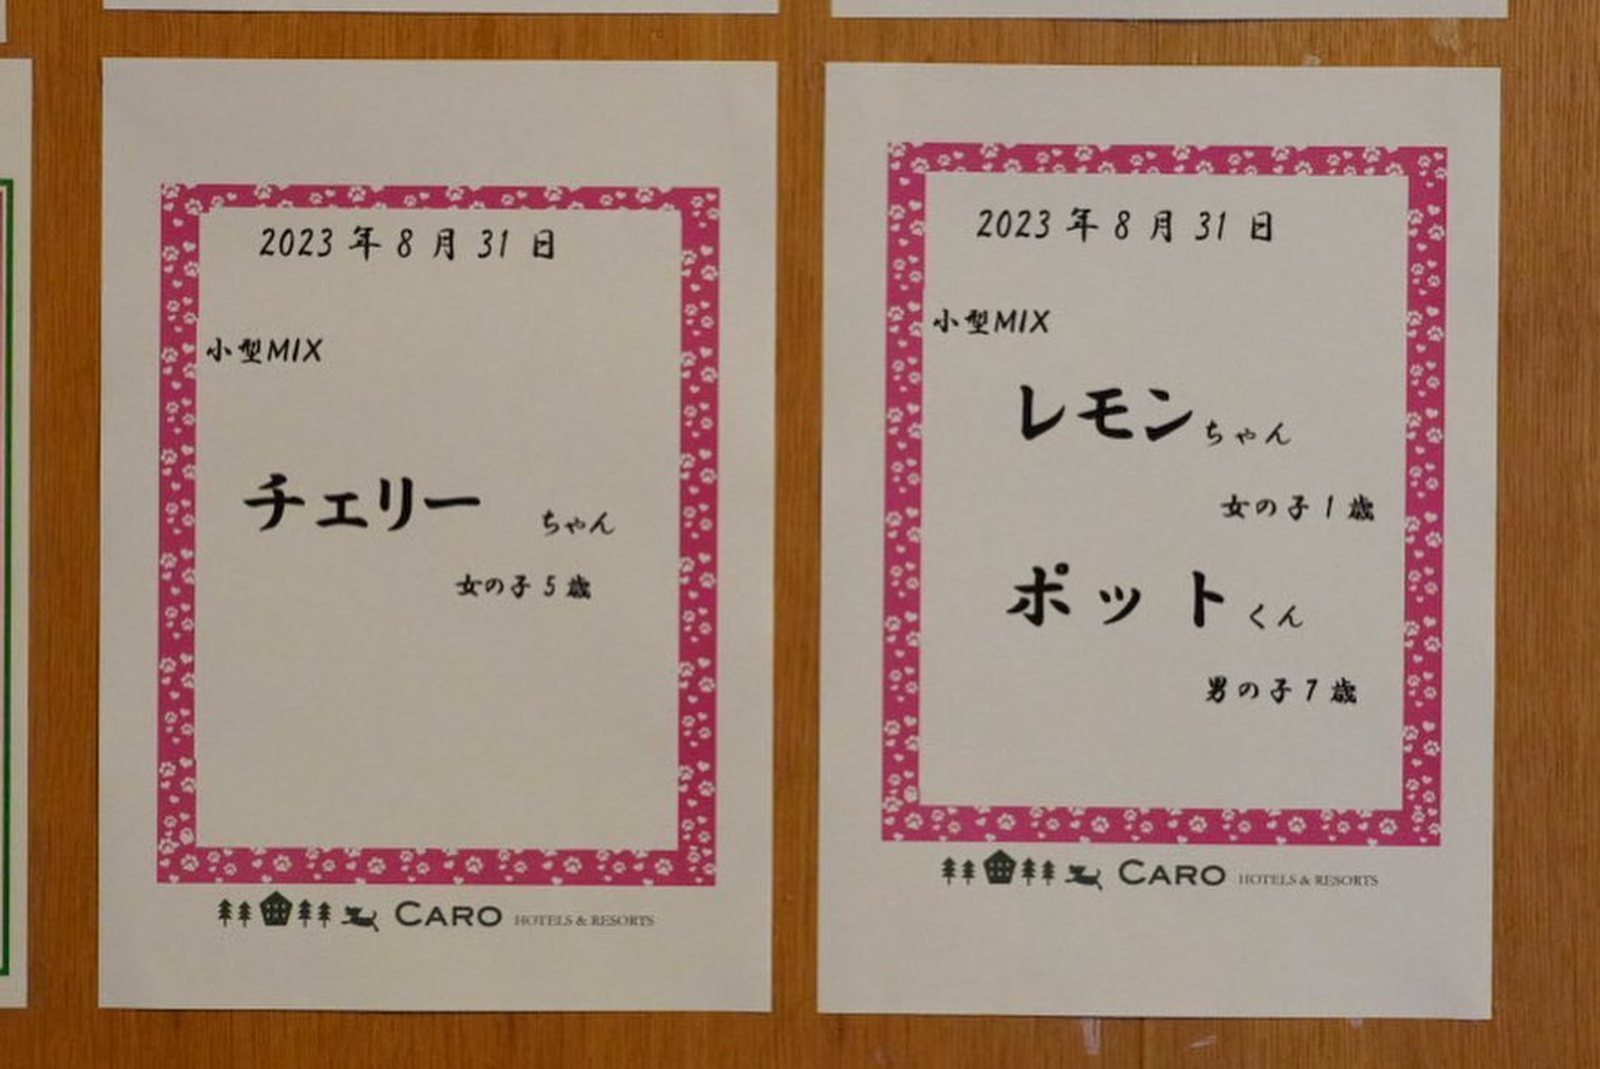 2023年8月31日
小型MIX
チェリー ちゃん
女の子5歳
CARO HOTELS & RESORTS
2023年8月31日
小型MIX
レモンちゃん
女の子1歳
ポットくん
男の子7歳
CARO HOTELS & RESORTS